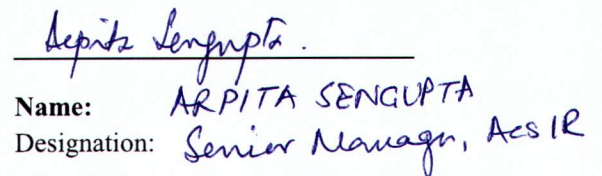 Arpita Sengupta.
Name: ARPITA SENGUPTA
Designation: Senior Manager, AcSIR